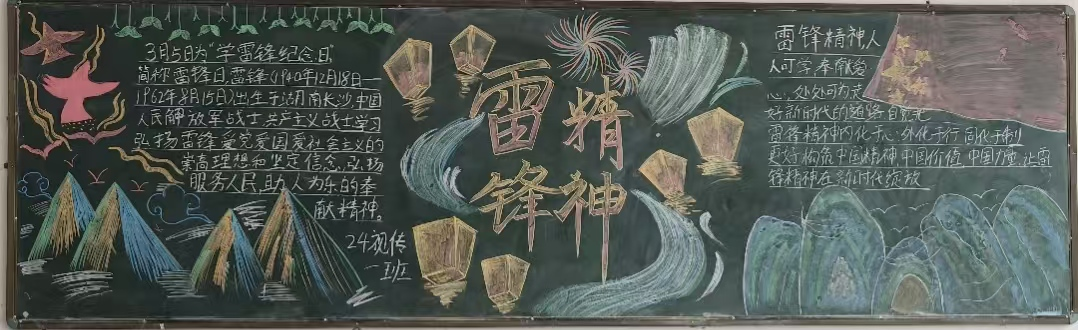 3月5日为“学雷锋纪念日”
简称雷锋日,雷锋(1940年12月18日—
1962年8月15日)出生于湖南长沙,中国
人民解放军战士共产主义战士学习
弘扬雷锋爱党爱国爱社会主义的
崇高理想和坚定信念,弘扬
服务人民,助人为乐的奉
献精神。
24视传
一班
雷锋
精神
雷锋精神人
人可学,奉献爱
心,处处可为
好新时代的
雷锋精神内化于心外化于行同化于制
更好构筑中国精神,中国价值,中国力量,让雷
锋精神在新时代绽放